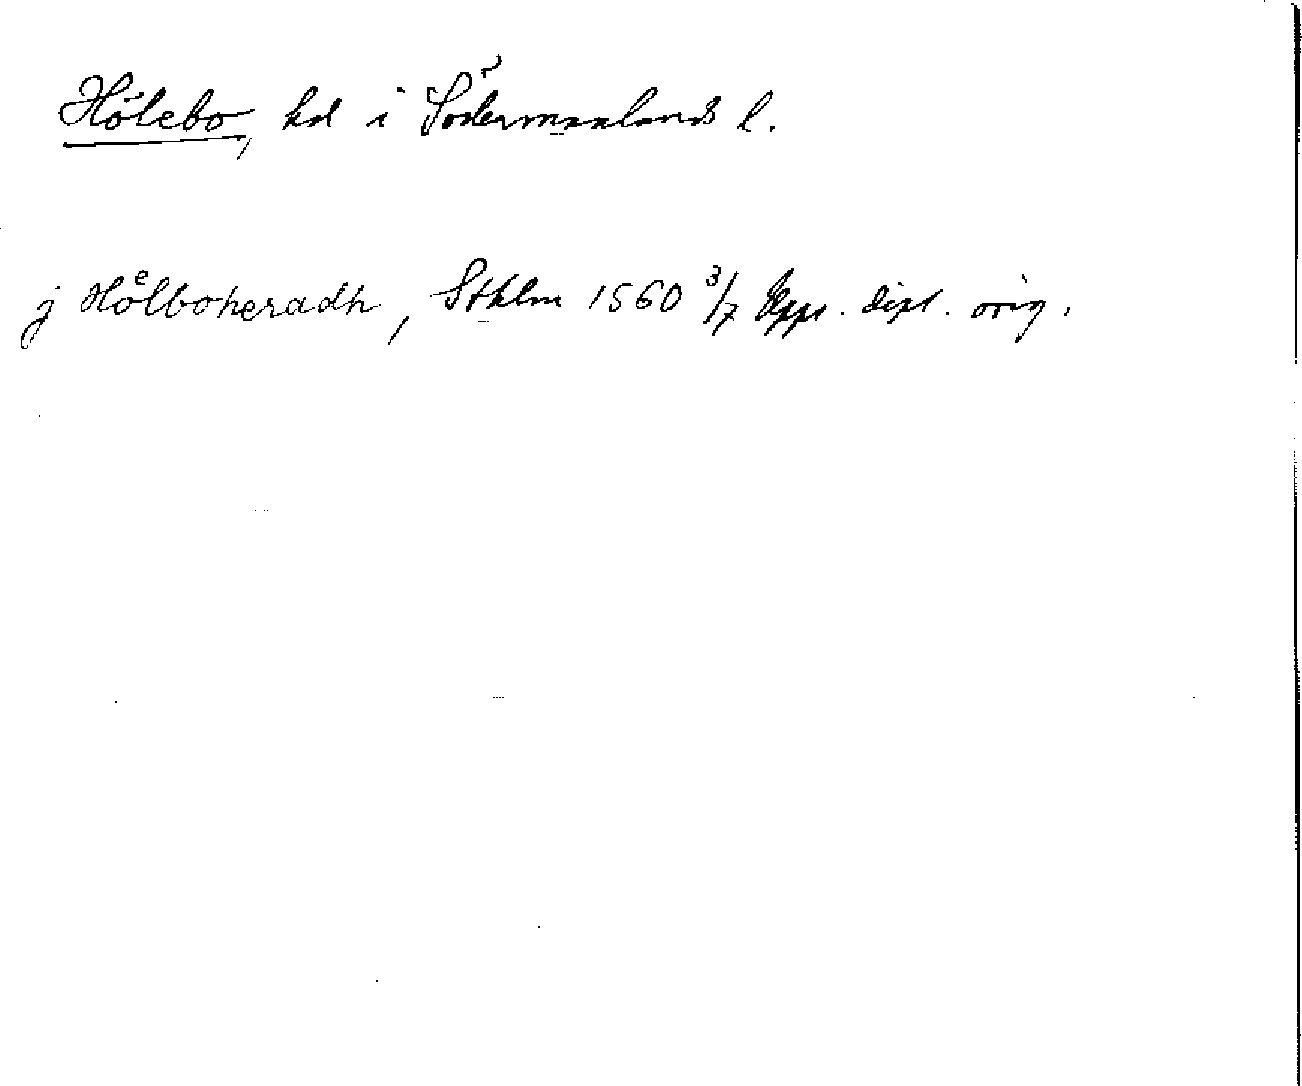 Hölebo, hd i Södermanlands l.
j Hoͤlboheradh, Sthlm 1560 3/7 Upps. dipl. orig.